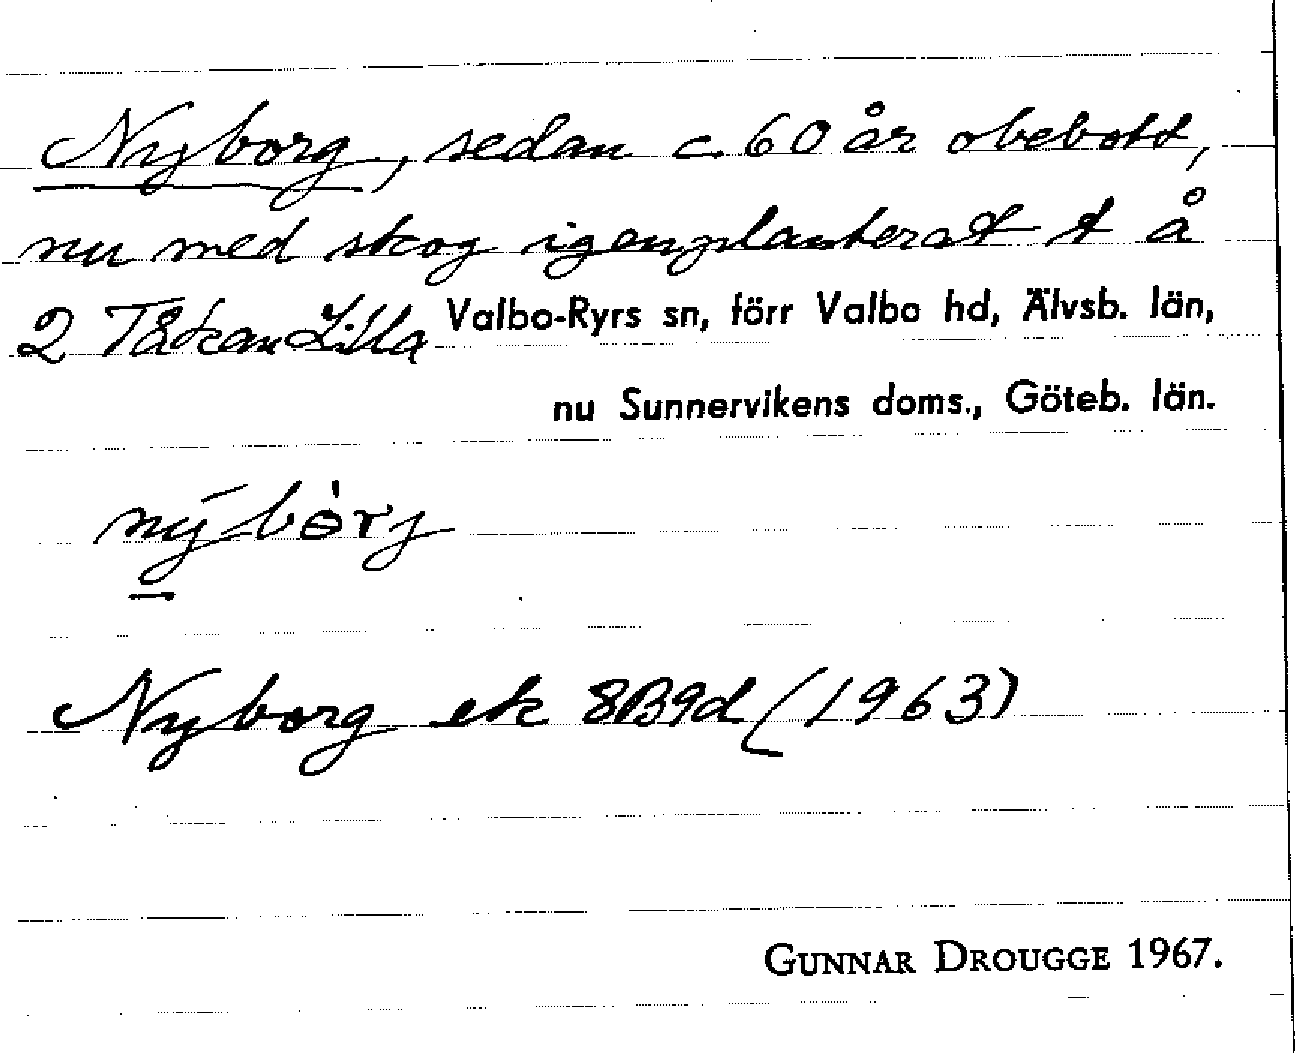 Nyborg, sedan c. 60 år obebott,
nu med skog igenplanterat t å
2 Tåkan Lilla Valbo-Ryrs sn, förr Valbo hd, Älvsb. län,
nu Sunnervikens doms., Göteb. län.
Nyborg ek 8B9d (1963)
GUNNAR DROUGGE 1967.